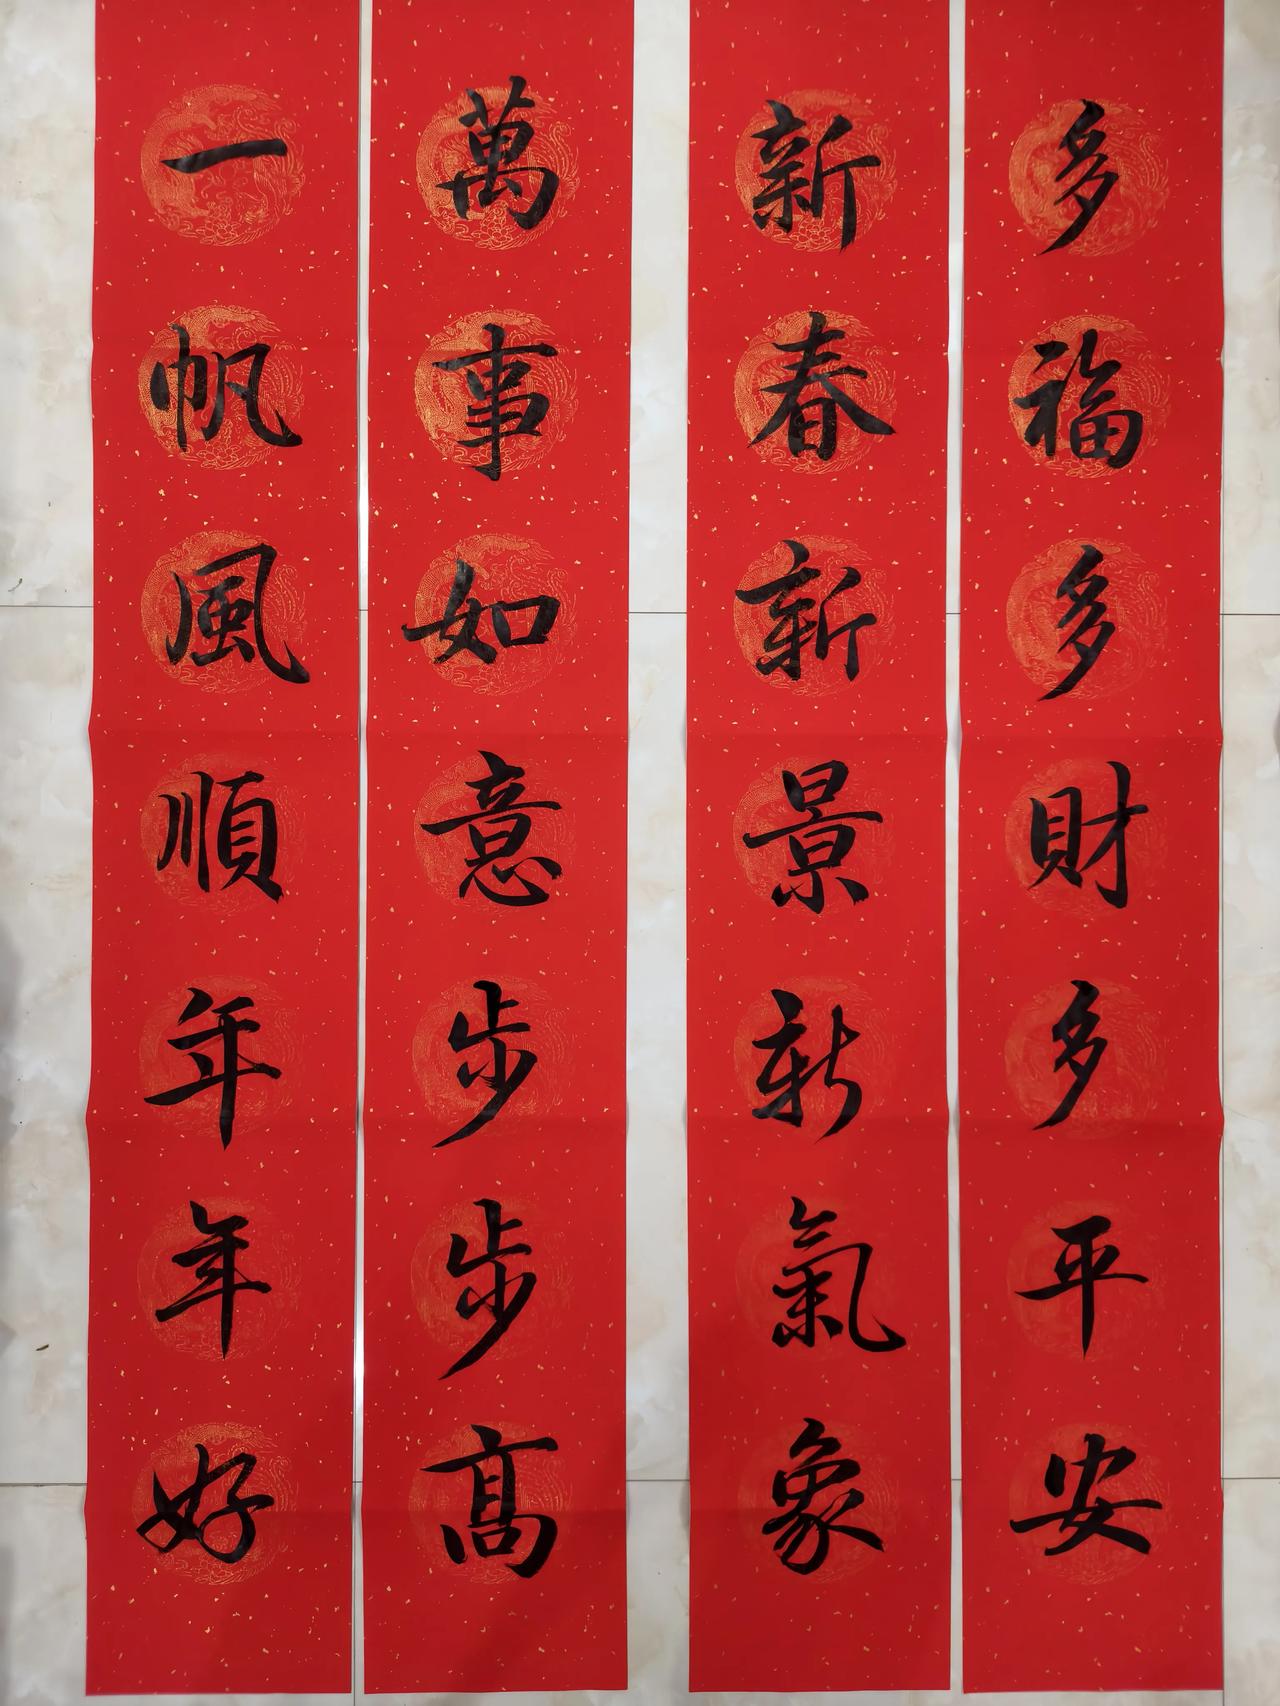 一帆風順年年好
萬事如意步步高
新春新景新氣象
多福多財多平安